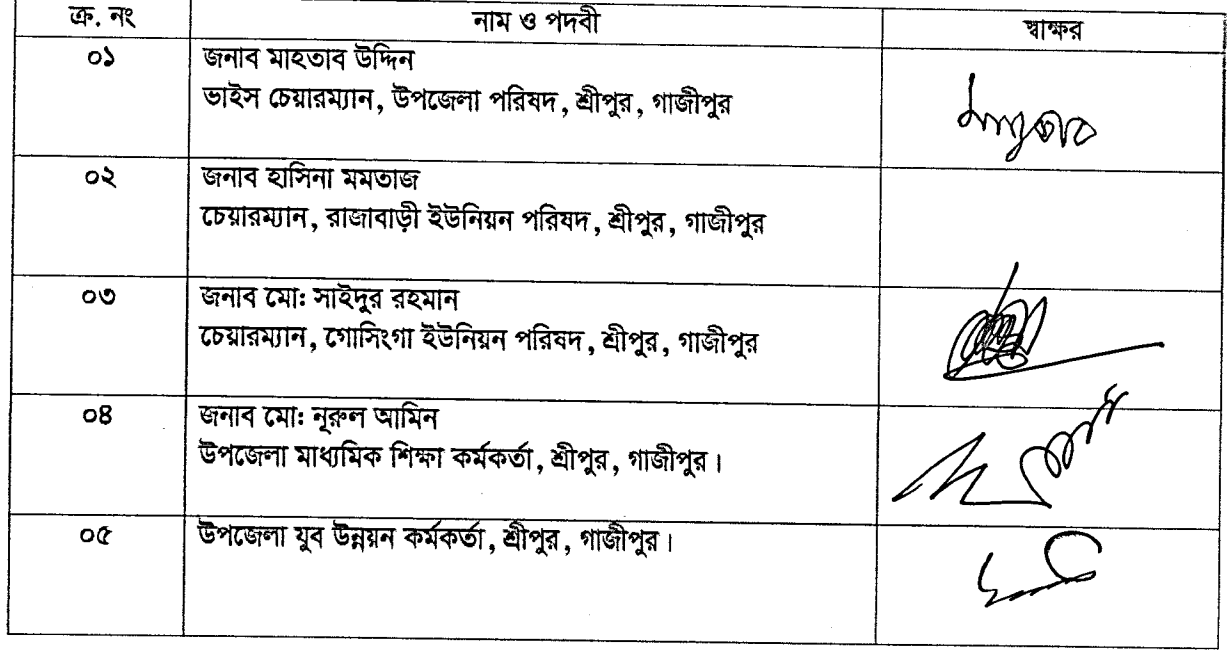 ক্র. নং নাম ও পদবী স্বাক্ষর
০১ জনাব মাহতাব উদ্দিন
ভাইস চেয়ারম্যান, উপজেলা পরিষদ, শ্রীপুর, গাজীপুর
০২ জনাব হাসিনা মমতাজ
চেয়ারম্যান, রাজাবাড়ী ইউনিয়ন পরিষদ, শ্রীপুর, গাজীপুর
০৩ জনাব মো: সাইদুর রহমান
চেয়ারম্যান, গোসিংগা ইউনিয়ন পরিষদ, শ্রীপুর, গাজীপুর
০৪ জনাব মো: নূরুল আমিন
উপজেলা মাধ্যমিক শিক্ষা কর্মকর্তা, শ্রীপুর, গাজীপুর।
০৫ উপজেলা যুব উন্নয়ন কর্মকর্তা, শ্রীপুর, গাজীপুর।